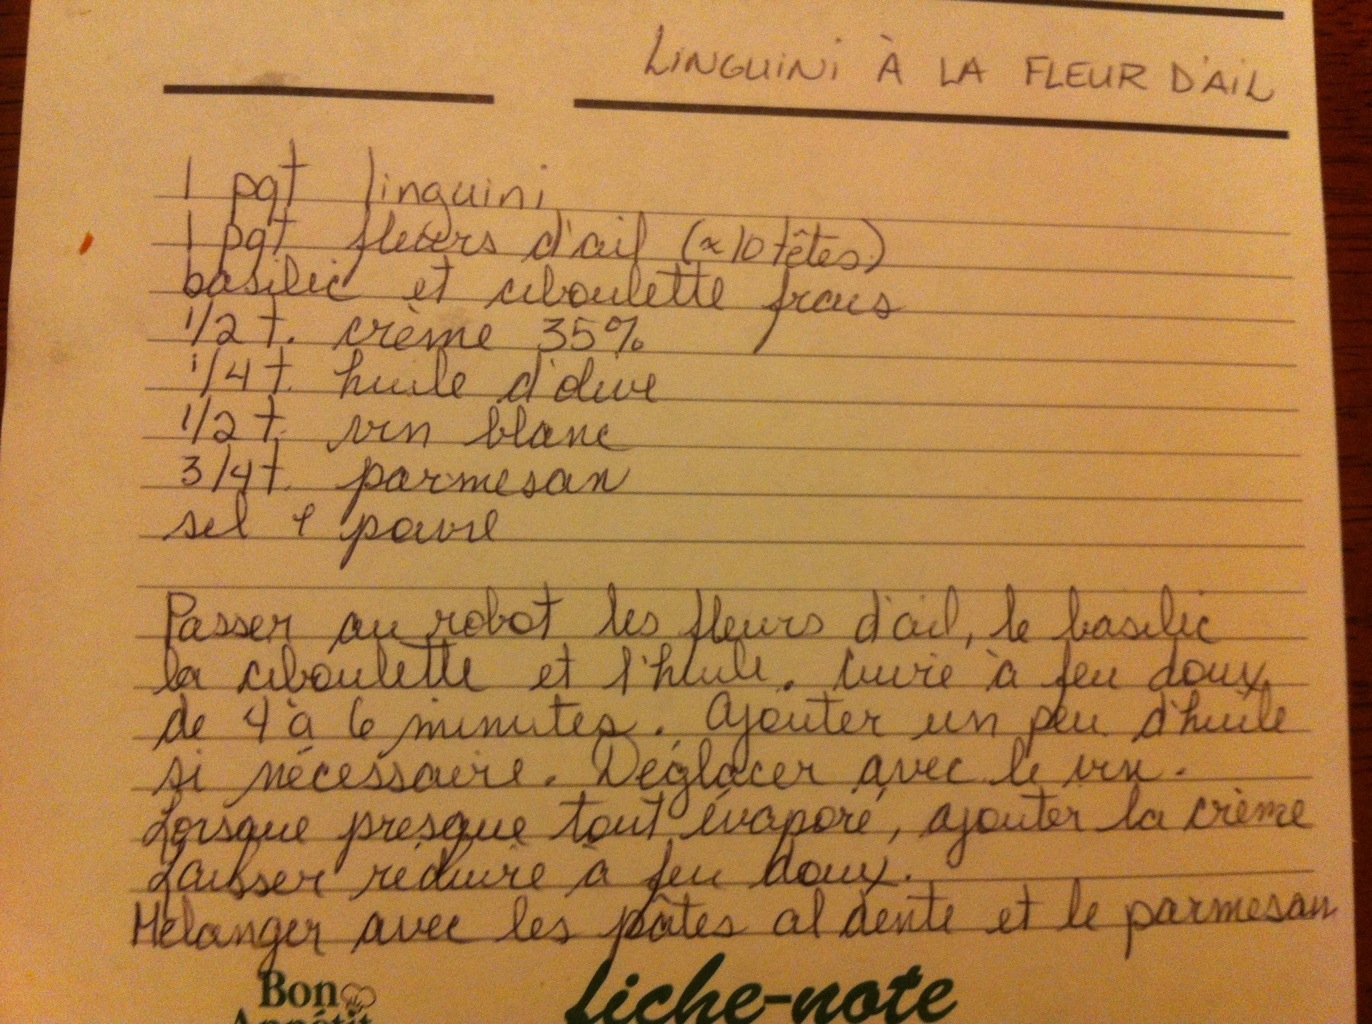 LINGUINI À LA FLEUR D'AIL
1 pqt linguini
1 pqt fleurs d'ail (≈ 10 têtes)
basilic et ciboulette frais
1/2 t. crème 35%
1/4 t. huile d'olive
1/2 t. vin blanc
3/4 t. parmesan
sel & poivre
Passer au robot les fleurs d'ail, le basilic
la ciboulette et l'huile. Cuire à feu doux
de 4 à 6 minutes. Ajouter un peu d'huile
si nécessaire. Déglacer avec le vin.
Lorsque presque tout évaporé, ajouter la crème
Laisser réduire à feu doux.
Mélanger avec les pâtes al dente et le parmesan
Bon
Appétit
fiche-note